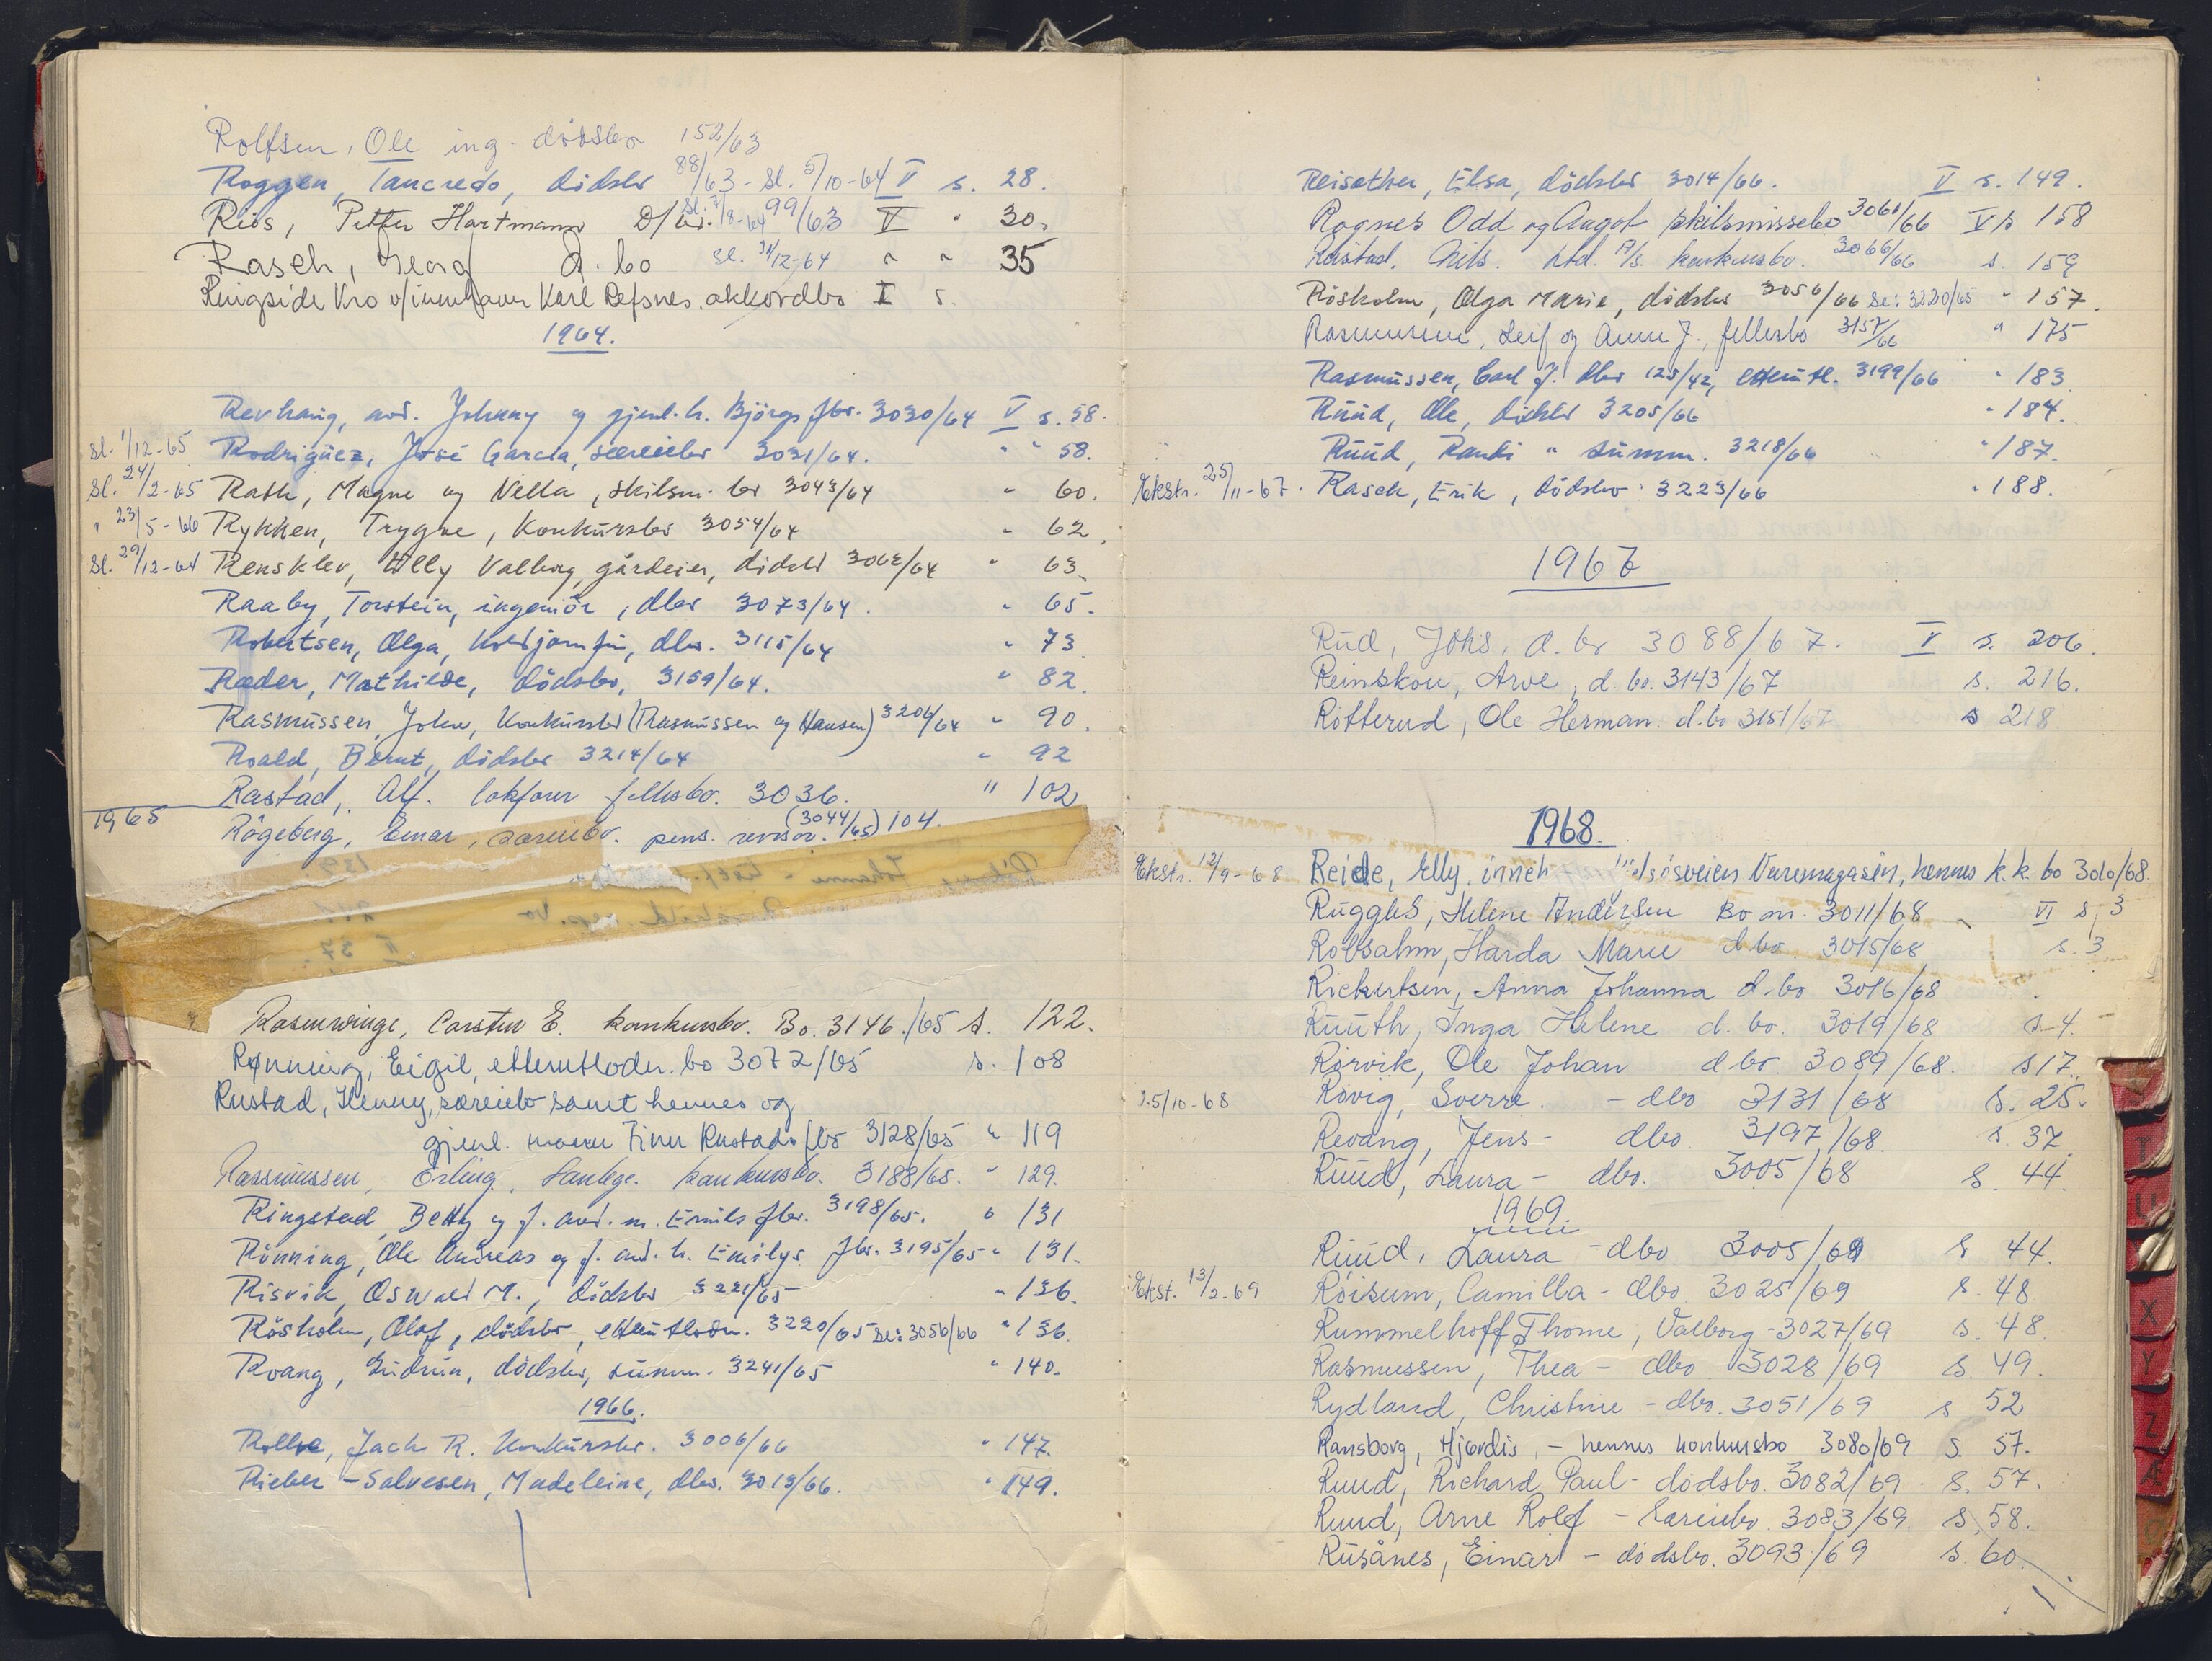 Rolfsen, Ole ing. dödsbo 152/63
Roggen, Tancredo, dödsbo 88/63 - Sl. 5/10-64 V s. 28.
Riis, Petter Hartmann D/bo. Sl. 7/8-64 99/63 V " 30.
Rasch, Georg d. bo Sl. 31/12-64 " " 35
Ringside Kro v/innehaver Karl Refsnes. akkordbo I s.
1964.
Revhaug, avd. Johnny og gjenl. h. Björgs fbo. 3030/64 V s. 58.
Sl. 1/12-65 Rodriguez, José Garcia, særeiebo 3031/64. " " 58.
Sl. 24/2-65 Rath, Magne og Nella, skilsm. bo 3043/64 " 60.
" 23/5-66 Rykken, Trygve, Konkursbo 3054/64 " 62.
Sl. 29/12-64 Rensklev, Willy Valborg, gårdeier, dödsbo 3062/64 " 63
Raaby, Torstein, ingeniör, dbo 3073/64. " 65.
Robertsen, Olga, dbo. 3115/64 " 73
Ræder, Mathilde, dödsbo, 3159/64. " 82.
Rasmussen, John, Konkursbo (Rasmussen og Hansen) 3206/64 " 90.
Roald, Bernt, dödsbo 3214/64 " 92
Rastad, Alf. lokfører fellesbo. 3036. " 102
1965
Rögeberg, Einar, særeiebo. pens. revisor. (3044/65) 104.
Rasenwinge, Carsten E. konkursbo. Bo. 3146./65 s. 122.
Rønning, Eigil, etterutlodn. bo 3072/65 s. 108
Rustad, Henny, særeiebo samt hennes og
gjenl. mann Finn Rustads fbo 3128/65 " 119
Rassmussen, Erling, konkursbo. 3188/65. " 129.
Ringstad, Betty og f. avd. m. Emils fbo. 3198/65. " 131
Rönning, Ole Andreas og f. avd. h. Emilys fbo. 3195/65 " 131.
Risvik, Oswald M., dödsbo 3221/65 " 136.
Rösholm, Olof, dödsbo, etterutlodn. 3220/65 se: 3056/66 " 136.
Rvang, Gudrun, dödsbo, summ. 3241/65 " 140.
1966.
Rollve, Jack R. Konkursbo. 3006/66 " 147.
Rieber-Salvesen, Madeleine, dbo. 3013/66. " 149.
Reisether, Elsa, dödsbo 3014/66. V s. 149.
Rognes Odd og Augot skilsmissebo 3061/66 V s 158
Nils. Ltd. A/s. konkursbo. 3066/66 s. 159
Rösholm, Olga Marie, dödsbo 3056/66 se: 3220/65 " 157.
Rasmussen, Leif og Anne J., fellesbo 3157/66 " 175
Rasmussen, Carl J. dbo 125/42, etterutl. 3199/66 " 183.
Ruud, Ole, dödsbo 3205/66 " 184.
Ruud, Randi " summ. 3218/66 " 187.
Ekstr. 25/11-67. Rasch, Erik, dödsbo 3223/66 " 188.
1967
Rud, Johs, d. bo 3088/67. V s. 206.
Reinskou, Arve, d. bo. 3143/67 s. 216.
Rotterud, Ole Herman. d. bo 3151/67 s 218.
1968.
Ekstr. 12/9-68 Reide, Elly, inneh Varemagasin, hennes k.k. bo 3010/68.
Ruggles, Helene Andersen Bo nr. 3011/68 VI s. 3
Robsahm, Harda Marie dbo 3015/68 s. 3
Rickertsen, Anna Johanna d. bo 3016/68
Ruuth, Inga Helene d. bo. 3019/68 s. 4.
Rörvik, Ole Johan d bo. 3089/68. s 17.
25/10-68 Rövig, Sverre. - dbo 3131/68 s. 25.
Revang, Jens - dbo 3197/68. s. 37
Ruud, Laura - dbo. 3005/68 s. 44.
1969
Ruud, Laura - dbo 3005/69 s 44.
Ekst. 13/2-69 Röisum, Camilla - dbo. 3025/69 s. 48
Rummelhoff Thome, Valborg - 3027/69 s. 48.
Rasmussen, Thea - dbo 3028/69 s. 49.
Rydland, Christine - dbo. 3051/69 s 52
Ransborg, Hjørdis, - hennes konkursbo 3080/69 s. 57.
Ruud, Richard Paul - dödsbo. 3082/69 s. 57.
Ruud, Arne Rolf - særeiebo. 3083/69. s. 58.
Rusånes, Einar - dödsbo. 3093/69 s. 60.
T
U
X
Y
Z
Æ